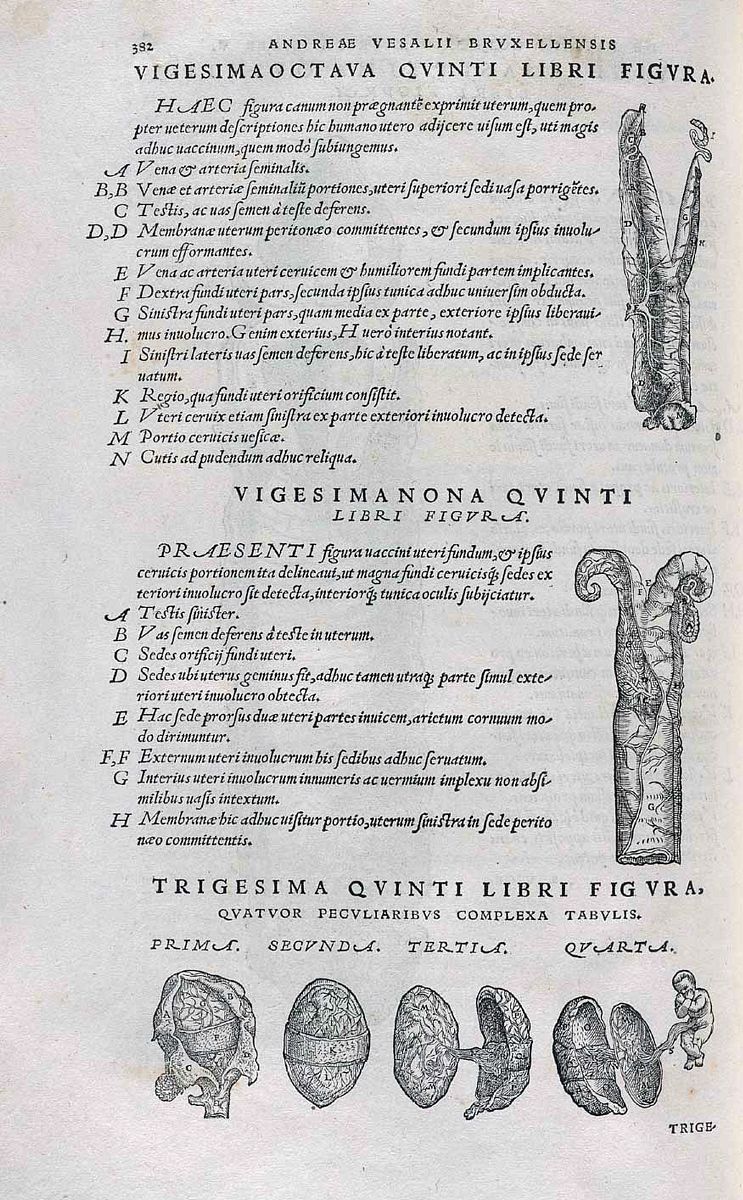 382 ANDREAE VESALII BRVXELLENSIS
VIGESIMAOCTAVA QVINTI LIBRI FIGVRA.
HAEC figura canum non prægnantẽ exprimit uterum, quem pro-
pter ueterum descriptiones hîc humano utero adijcere uisum est, uti magis
adhuc uaccinum, quem modò subiungemus.
A Vena & arteria seminalis.
B,B Venæ et arteriæ seminaliũ portiones, uteri superiori sedi uasa porrigẽtes.
C Testis, ac uas semen à teste deferens.
D,D Membranæ uterum peritonæo committentes, & secundum ipsius inuolu-
crum efformantes.
E Vena ac arteria uteri ceruicem & humiliorem fundi partem implicantes.
F Dextra fundi uteri pars, secunda ipsius tunica adhuc uniuersim obducta.
G Sinistra fundi uteri pars, quam media ex parte, exteriore ipsius liberaui-
H. mus inuolucro. G enim exterius, H uerò interius notant.
I Sinistri lateris uas semen deferens, hîc à teste liberatum, ac in ipsius sede ser
uatum.
K Regio, qua fundi uteri orificium consistit.
L Vteri ceruix etiam sinistra ex parte exteriori inuolucro detecta.
M Portio ceruicis uesicæ.
N Cutis ad pudendum adhuc reliqua.
VIGESIMANONA QVINTI
LIBRI FIGVRA.
PRAESENTI figura uaccini uteri fundum, & ipsius
ceruicis portionem ita delineaui, ut magna fundi ceruicisq́; sedes ex
teriori inuolucro sit detecta, interiorq́; tunica oculis subijciatur.
A Testis sinister.
B Vas semen deferens à teste in uterum.
C Sedes orificij fundi uteri.
D Sedes ubi uterus geminus fit, adhuc tamen utraq; parte simul exte-
riori uteri inuolucro obtecta.
E Hac sede prorsus duæ uteri partes inuicem, arietum cornuum mo-
do dirimuntur.
F,F Externum uteri inuolucrum his sedibus adhuc seruatum.
G Interius uteri inuolucrum innumeris ac uermium implexu non absi-
milibus uasis intextum.
H Membranæ hîc adhuc uisitur portio, uterum sinistra in sede perito
næo committentis.
TRIGESIMA QVINTI LIBRI FIGVRA,
QVATVOR PECVLIARIBVS COMPLEXA TABVLIS.
PRIMA. SECVNDA. TERTIA. QVARTA.
TRIGE-